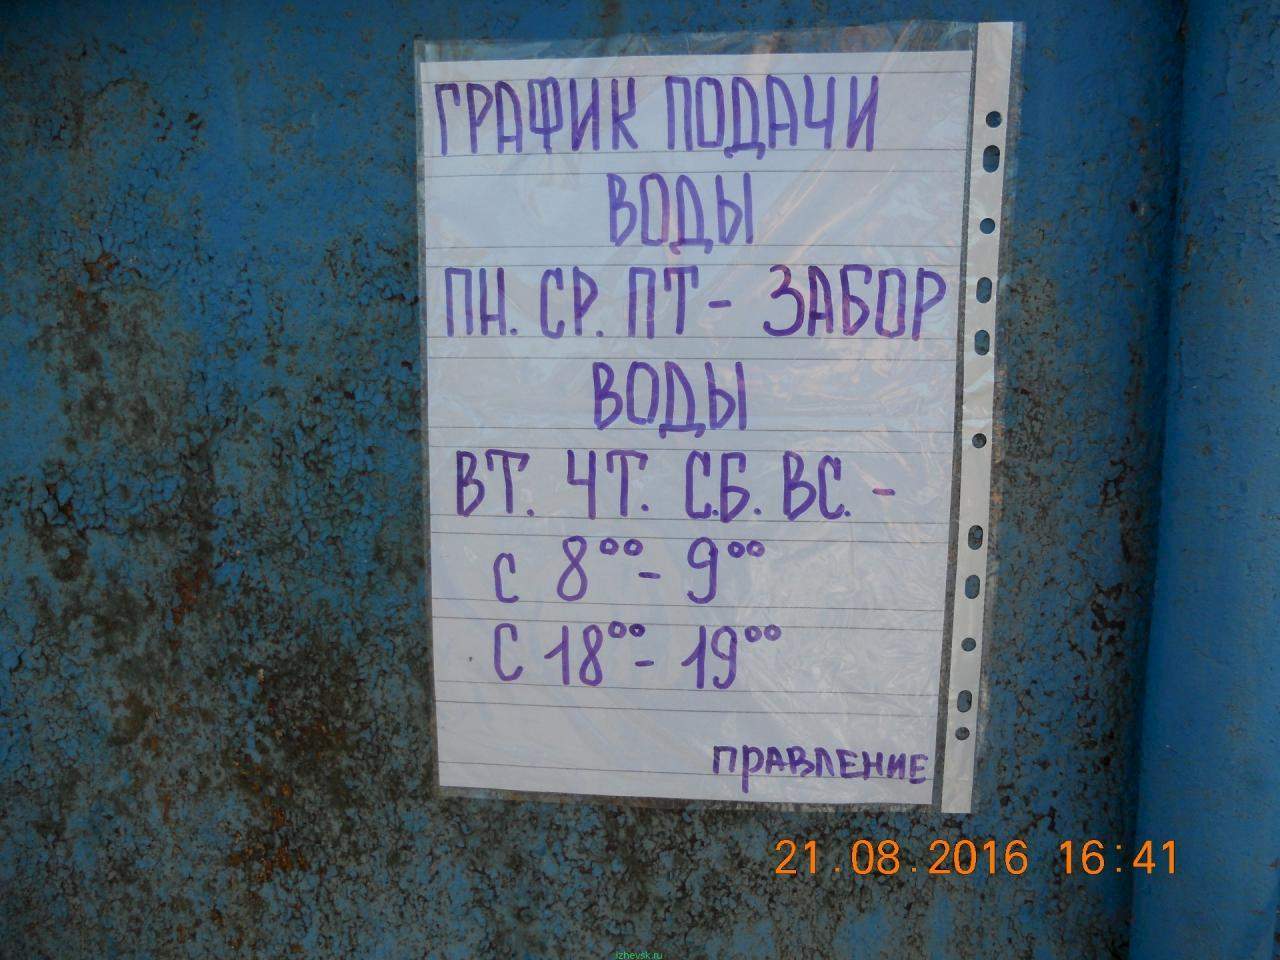 ГРАФИК ПОДАЧИ
ВОДЫ
ПН. СР. ПТ - ЗАБОР
ВОДЫ
ВТ. ЧТ. С.Б. ВС. -
С 8⁰⁰ - 9⁰⁰
С 18⁰⁰ - 19⁰⁰
ПРАВЛЕНИЕ
21.08.2016 16:41
izhevsk.ru